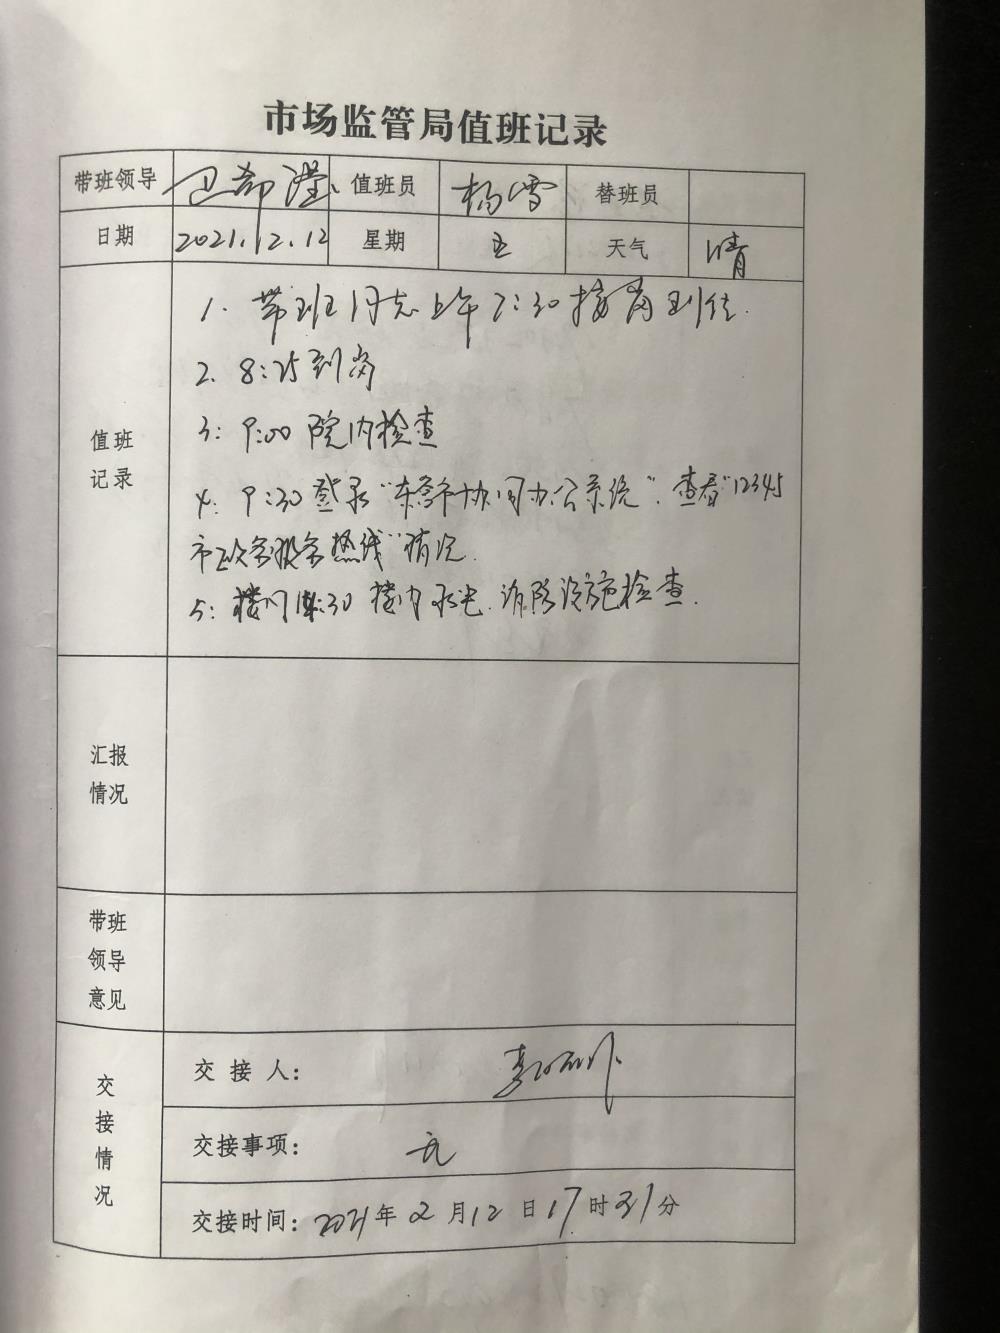 市场监管局值班记录
带班领导 值班员 杨雪 替班员
日期 2021.12.12 星期 五 天气 晴
值班
记录
1. 带班同志上午7:30接岗到位.
2. 8:25到岗
3: 9:00 院内检查
4: 9:30登录“东营市协同办公系统”.查看“12345
市政务服务热线”情况.
5: 楼门 :30 楼内水电.消防设施检查.
汇报
情况
带班
领导
意见
交
接
情
况
交接人:
交接事项: 无
交接时间: 2021年2月12日17时31分